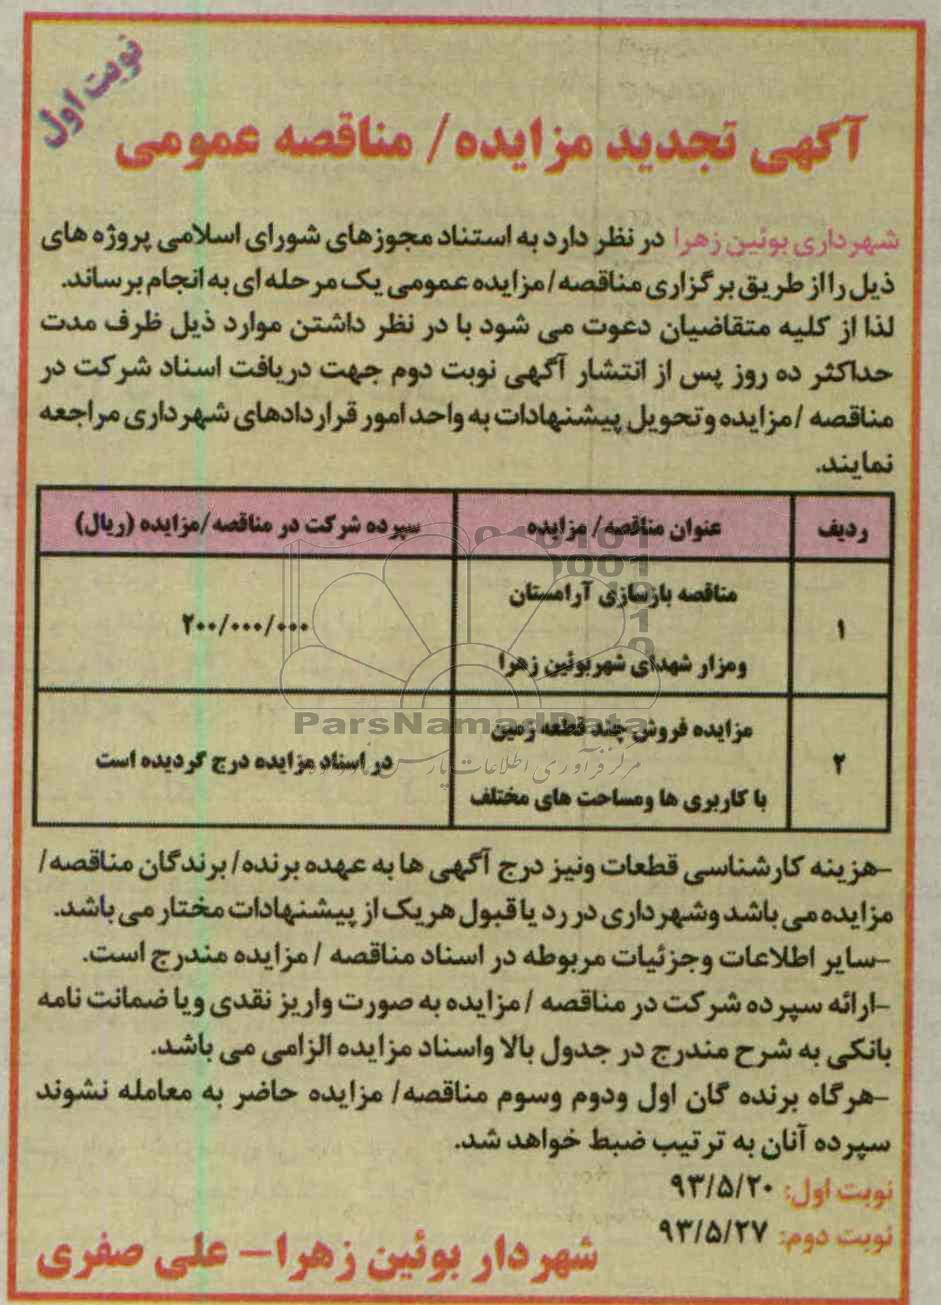 نوبت اول
آگهی تجدید مزایده/ مناقصه عمومی
شهرداری بوئین زهرا در نظر دارد به استناد مجوزهای شورای اسلامی پروژه های
ذیل را از طریق برگزاری مناقصه/مزایده عمومی یک مرحله ای به انجام برساند.
لذا از کلیه متقاضیان دعوت می شود با در نظر داشتن موارد ذیل ظرف مدت
حداکثر ده روز پس از انتشار آگهی نوبت دوم جهت دریافت اسناد شرکت در
مناقصه /مزایده وتحویل پیشنهادات به واحد امور قراردادهای شهرداری مراجعه
نمایند.
ردیف عنوان مناقصه/ مزایده سپرده شرکت در مناقصه/مزایده (ریال)
۱ مناقصه بازسازی آرامستان
ومزار شهدای شهربوئین زهرا ۲۰۰/۰۰۰/۰۰۰
۲ مزایده فروش چند قطعه زمین
با کاربری ها ومساحت های مختلف در اسناد مزایده درج گردیده است
ParsNamadData
مرکز فرآوری اطلاعات پارس نماد داده ها
-هزینه کارشناسی قطعات ونیز درج آگهی ها به عهده برنده/ برندگان مناقصه/
مزایده می باشد وشهرداری در رد یا قبول هریک از پیشنهادات مختار می باشد.
-سایر اطلاعات وجزئیات مربوطه در اسناد مناقصه / مزایده مندرج است.
-ارائه سپرده شرکت در مناقصه /مزایده به صورت واریز نقدی ویا ضمانت نامه
بانکی به شرح مندرج در جدول بالا واسناد مزایده الزامی می باشد.
-هرگاه برنده گان اول ودوم وسوم مناقصه/ مزایده حاضر به معامله نشوند
سپرده آنان به ترتیب ضبط خواهد شد.
نوبت اول: ۹۳/۵/۲۰
نوبت دوم: ۹۳/۵/۲۷
شهردار بوئین زهرا- علی صفری